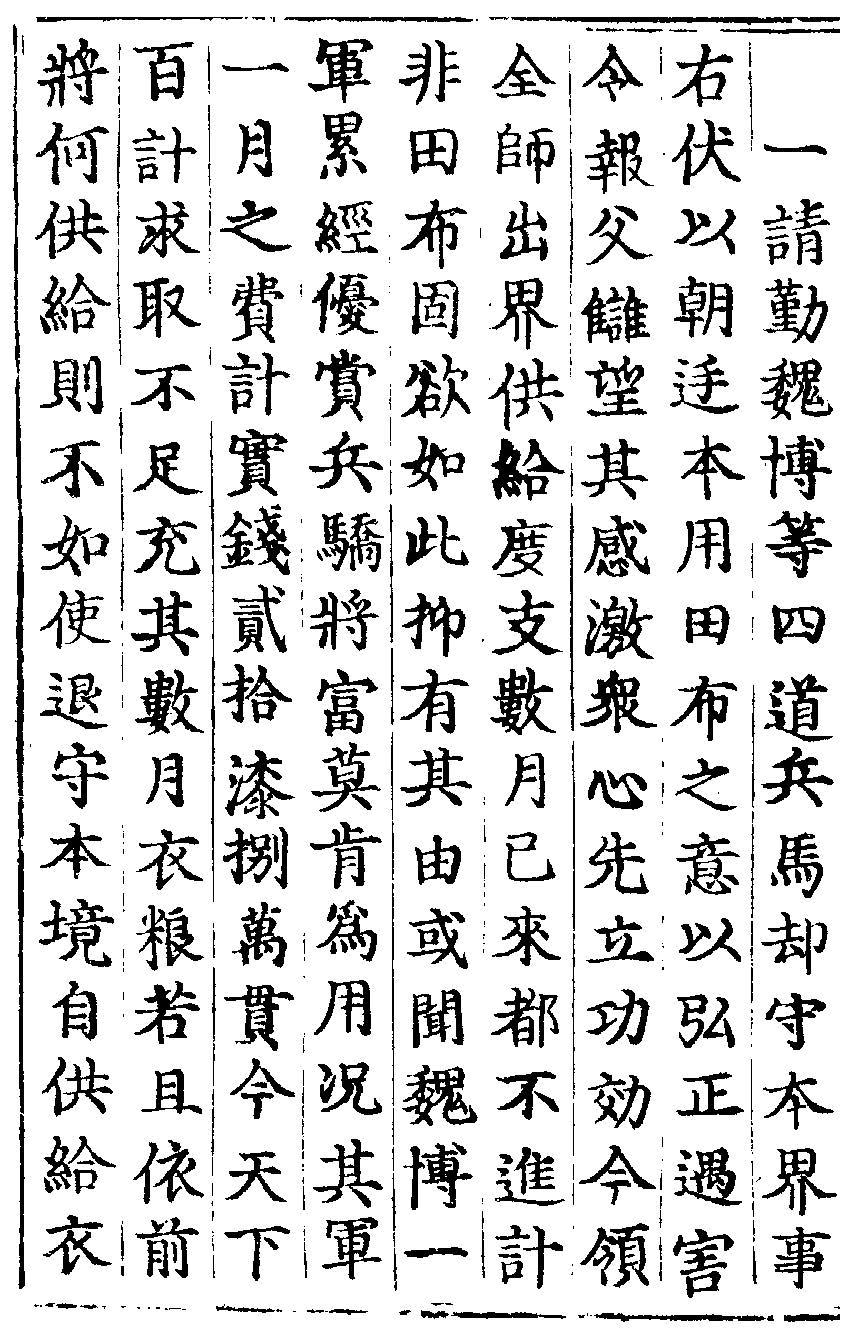 一請勤魏博等四道兵馬却守本界事
右伏以朝迋本用田布之意以弘正遇害
令報父讎望其感激衆心先立功効今領
全師出界供給度支數月已來都不進計
非田布固欲如此抑有其由或聞魏博一
軍累經優賞兵驕將富莫肯爲用况其軍
一月之費計實錢貳拾漆捌萬貫今天下
百計求取不足充其數月衣粮若且依前
將何供給則不如使退守本境自供給衣